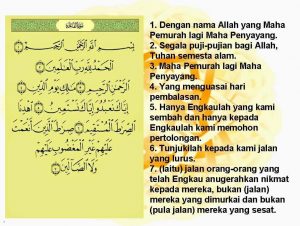 بِسْمِ اللَّهِ الرَّحْمَٰنِ الرَّحِيمِ ﴿١﴾
الْحَمْدُ لِلَّهِ رَبِّ الْعَالَمِينَ ﴿٢﴾
الرَّحْمَٰنِ الرَّحِيمِ ﴿٣﴾ مَالِكِ يَوْمِ الدِّينِ ﴿٤﴾
إِيَّاكَ نَعْبُدُ وَإِيَّاكَ نَسْتَعِينُ ﴿٥﴾ اهْدِنَا
الصِّرَاطَ الْمُسْتَقِيمَ ﴿٦﴾ صِرَاطَ الَّذِينَ أَنْعَمْتَ
عَلَيْهِمْ غَيْرِ الْمَغْضُوبِ عَلَيْهِمْ
وَلَا الضَّالِّينَ ﴿٧﴾
1. Dengan nama Allah yang Maha
Pemurah lagi Maha Penyayang.
2. Segala puji-pujian bagi Allah,
Tuhan semesta alam.
3. Maha Pemurah lagi Maha
Penyayang.
4. Yang menguasai hari
pembalasan.
5. Hanya Engkaulah yang kami
sembah dan hanya kepada
Engkaulah kami memohon
pertolongan.
6. Tunjukilah kepada kami jalan
yang lurus.
7. (Iaitu) jalan orang-orang yang
telah Engkau anugerahkan nikmat
kepada mereka, bukan (jalan)
mereka yang dimurkai dan bukan
(pula jalan) mereka yang sesat.